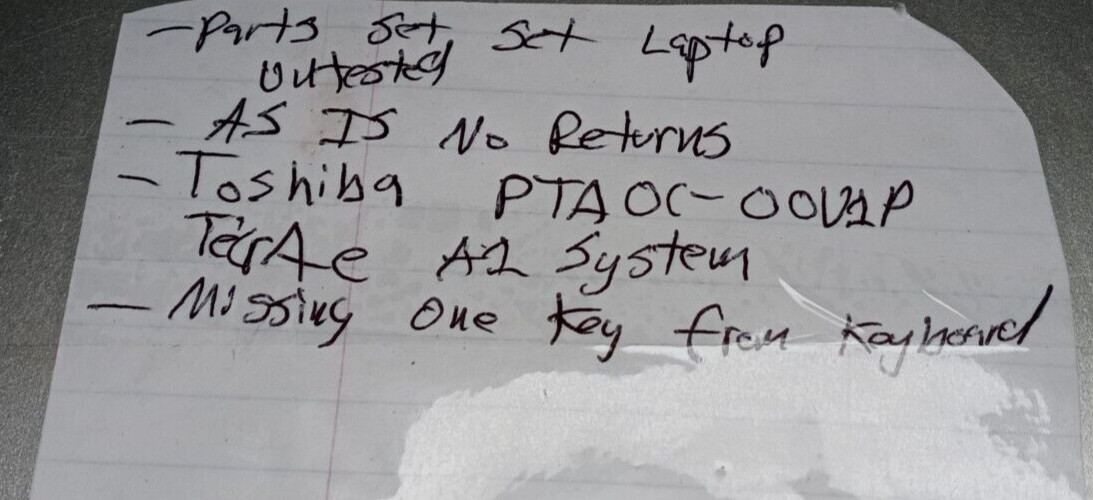 - Parts Set Set Laptop
Untested
- AS IS No Returns
- Toshiba PTA0C-00V1P
TecrA A1 System
- Missing One Key from Keyboard